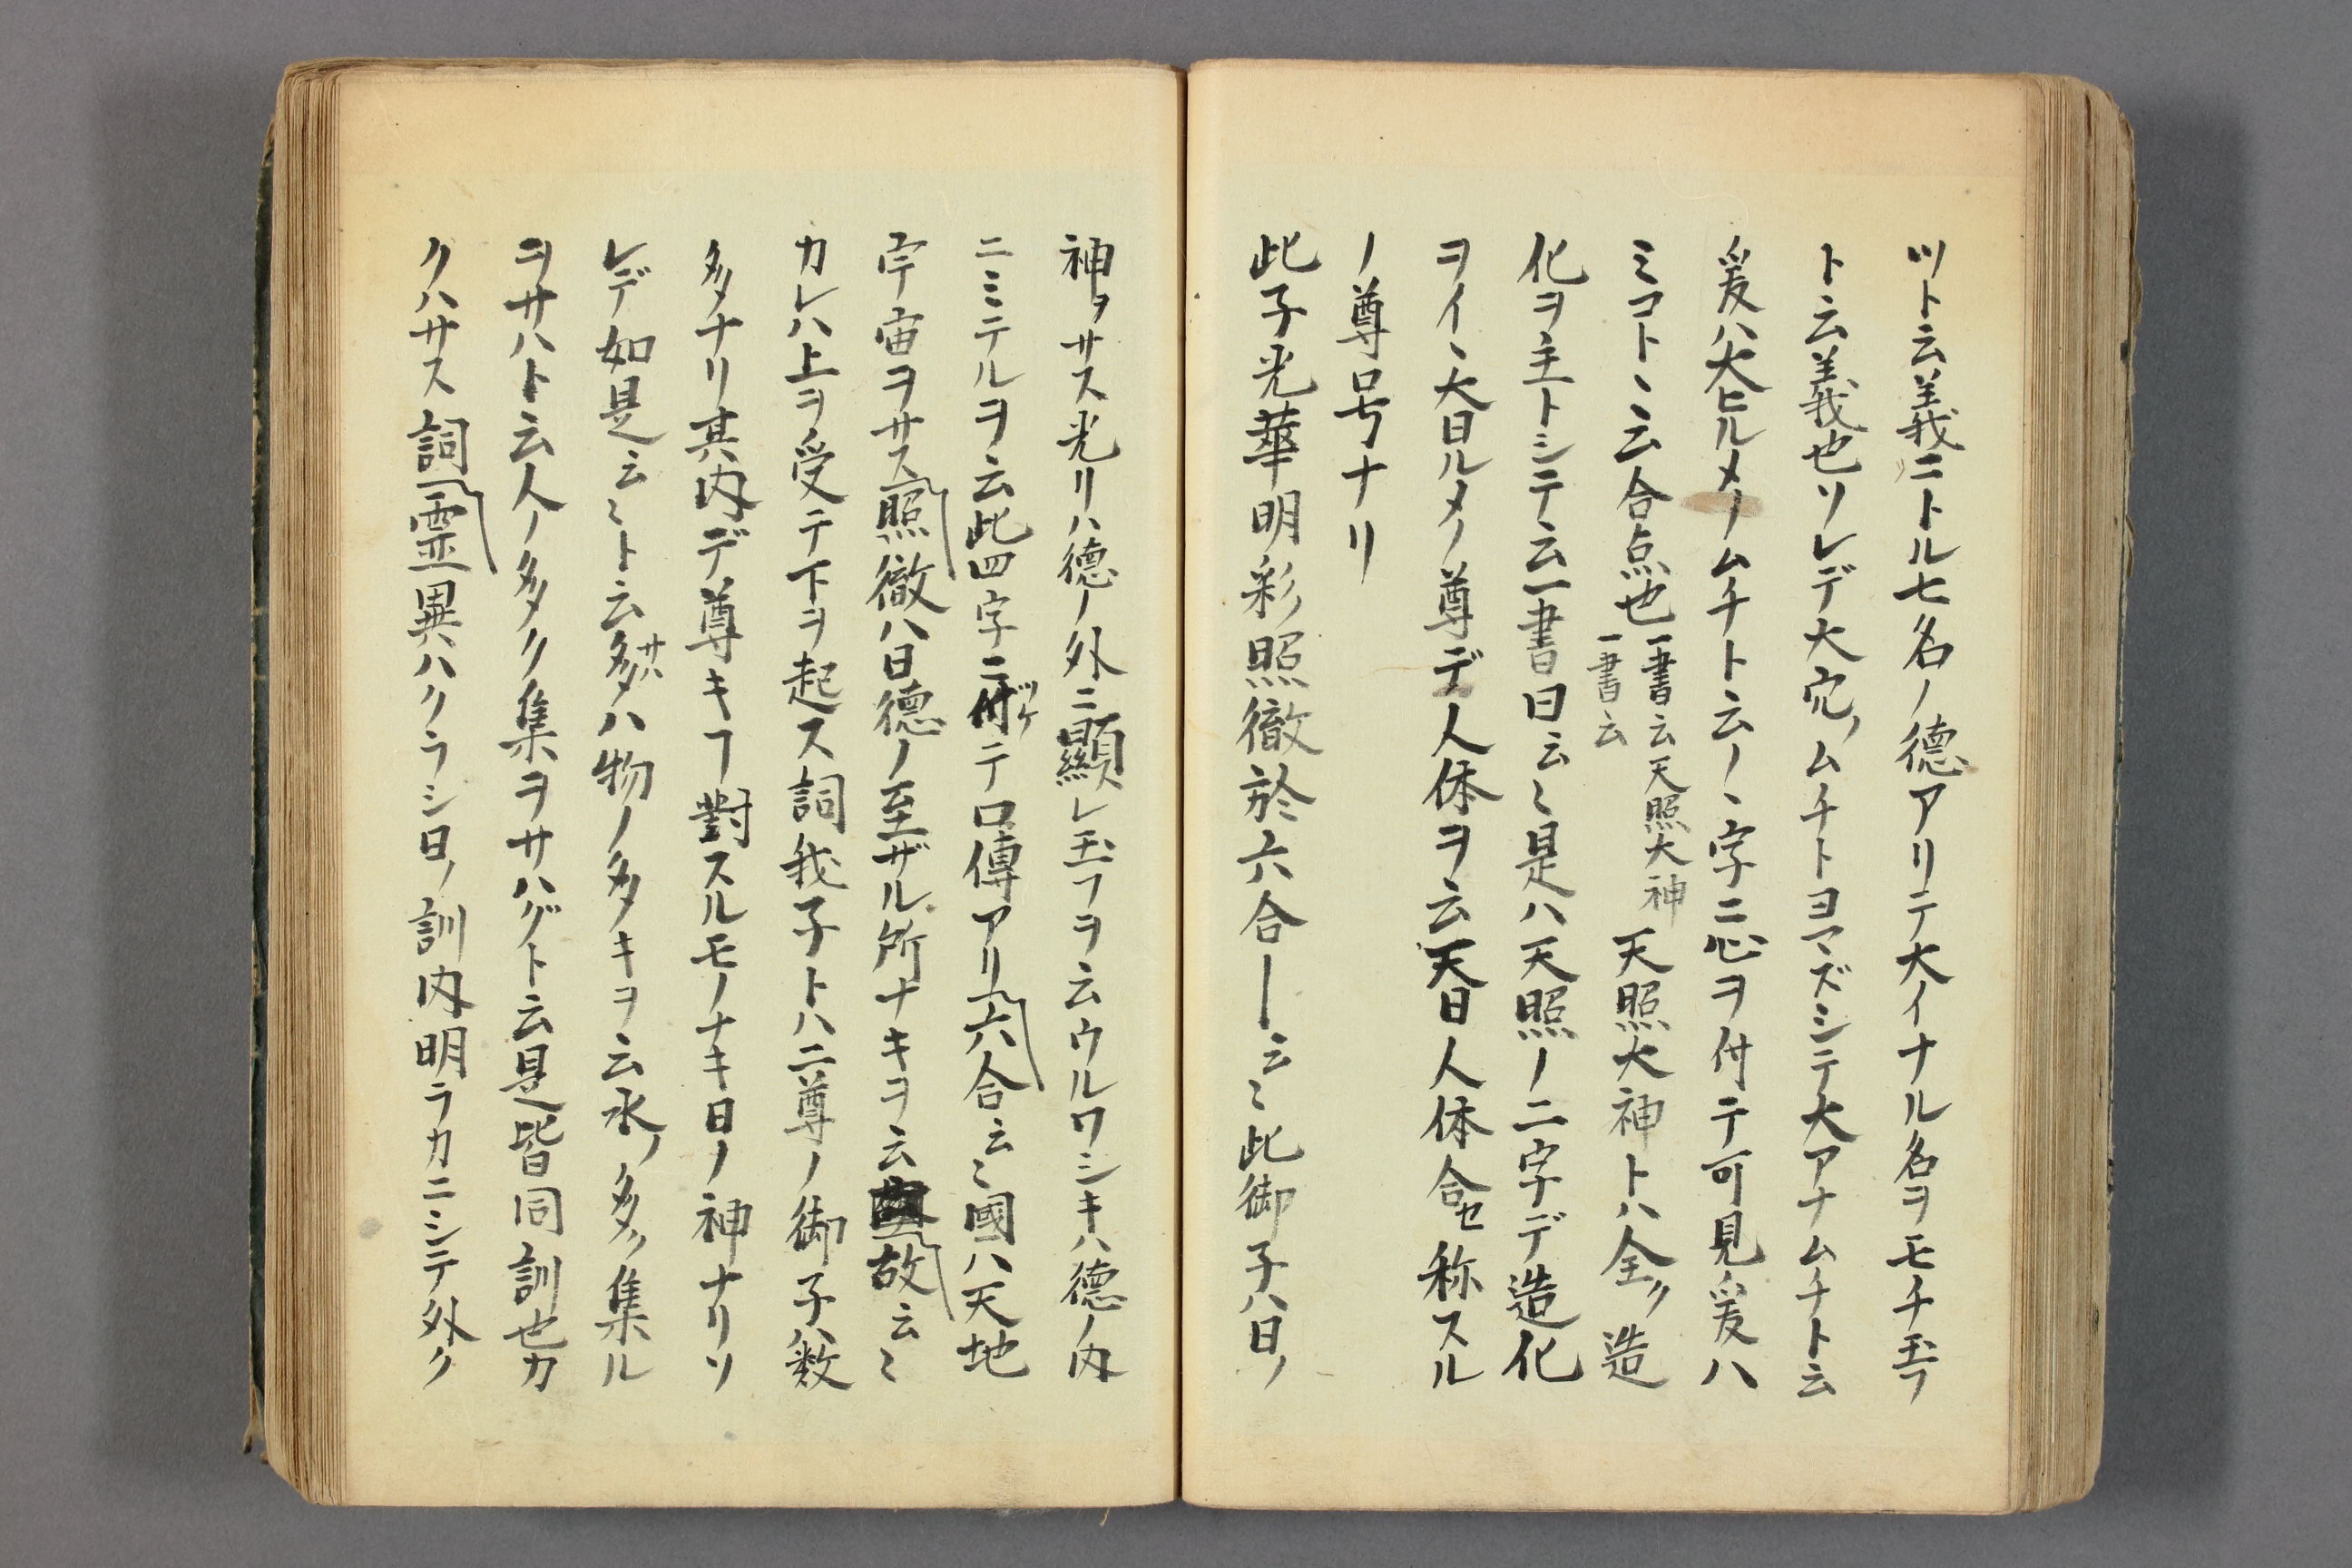 ツト云義ニトル七名ノ德アリテ大イナル名ヲモチ玉フ
ト云義也ソレデ大穴ノムチトヨマズシテ大アナムチト云
爰ハ大ヒルメノムチト云ノ、字ニ心ヲ付テ可見爰ハ
ミコト、云合点也一書云天照大神一書云天照大神トハ全ク造
化ヲ主トシテ云一書曰云〻是ハ天照ノ二字デ造化
ヲイ、大日ルメノ尊デ人体ヲ云天日人体合セ称スル
ノ尊号ナリ
此子光華明彩照徹於六合―云〻此御子ハ日ノ
神ヲサス光リハ德ノ外ニ顯レ玉フヲ云ウルワシキハ德ノ内
ニミテルヲ云此四字ニ付ツケテ口傳アリ六合云〻國ハ天地
宇宙ヲサス照徹ハ日德ノ至ザル所ナキヲ云故云〻
カレハ上ヲ受テ下ヲ起ス詞我子トハ二尊ノ御子ハ数
多ナリ其内デ尊キヿ對スルモノナキ日ノ神ナリソ
レデ如是云〻ト云多サハハ物ノ多キヲ云水ノ多ク集ル
ヲサハト云人ノ多ク集ヲサハグト云是皆同訓也カ
クハサス詞霊異ハクラシ日ノ訓内明ラカニシテ外ク